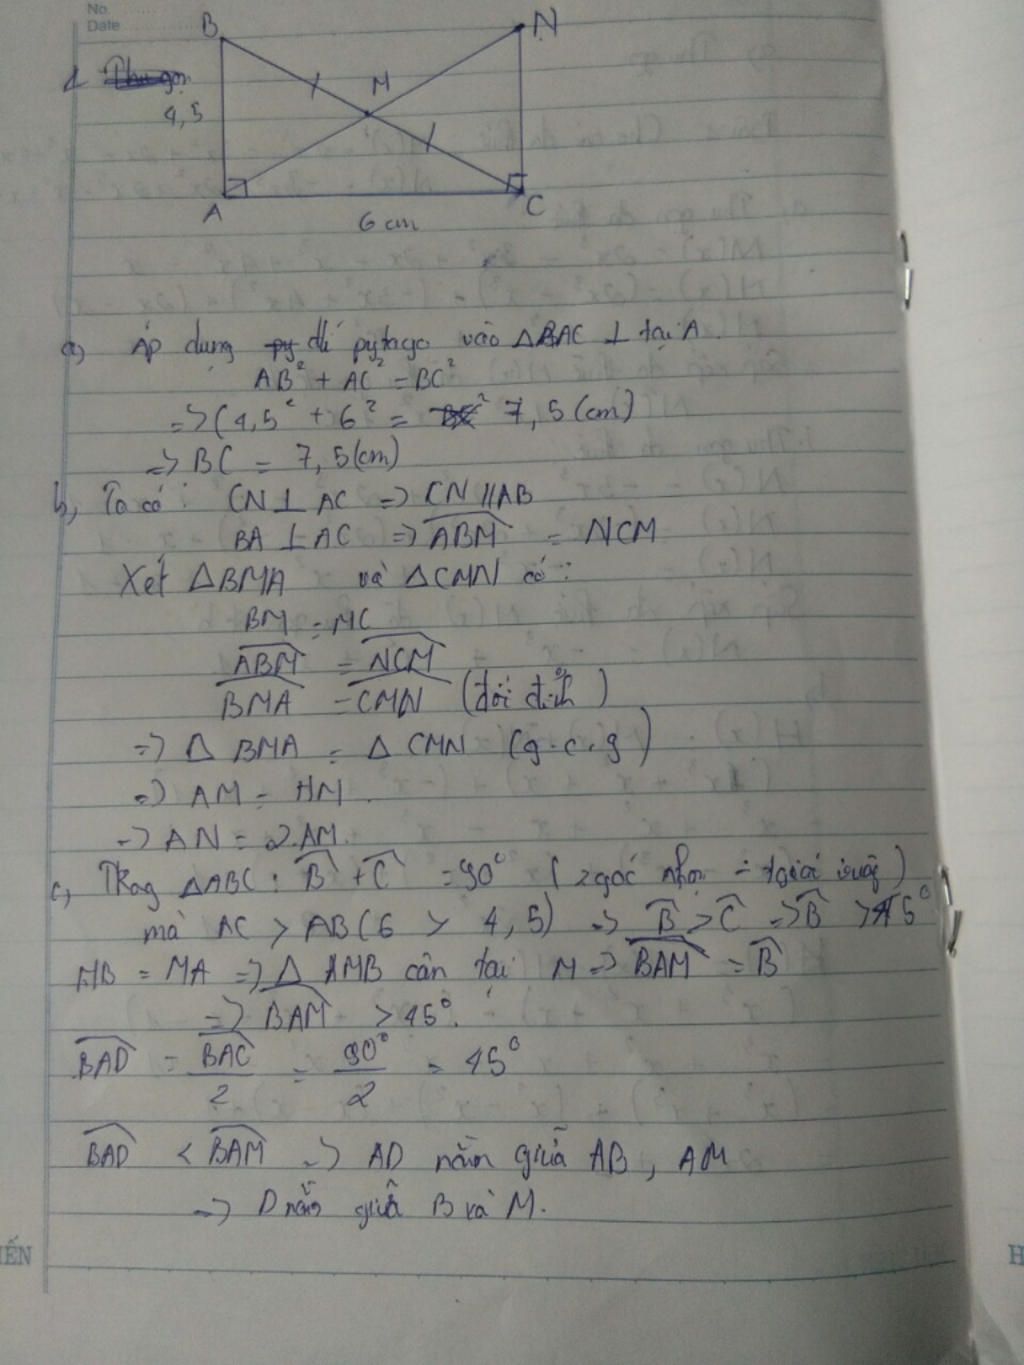 No.
Date
B
N
M
4,5
A
C
6 cm
a) Áp dụng đlí pytago vào △BAC ⊥ tại A.
AB² + AC² = BC²
=> (4,5² + 6² = 7,5 (cm)
=> BC = 7,5 (cm)
b, Ta có : CN ⊥ AC => CN // AB
BA ⊥ AC => ABM = NCM
Xét △BMA và △CMN có :
BM = MC
ABM = NCM
BMA = CMN (đối đỉnh)
=> △ BMA = △ CMN (g.c.g)
=> AM = NM.
=> AN = 2.AM.
c, △ABC : B + C = 90° (2 góc nhọn
mà AC > AB (6 > 4,5) => B > C => B > 45°
MB = MA => △ AMB cân tại M => BAM = B
=> BAM > 45°.
BAD = BAC/2 = 90°/2 = 45°
BAD < BAM => AD nằm giữa AB, AM
=> D nằm giữa B và M.
IẾN
H